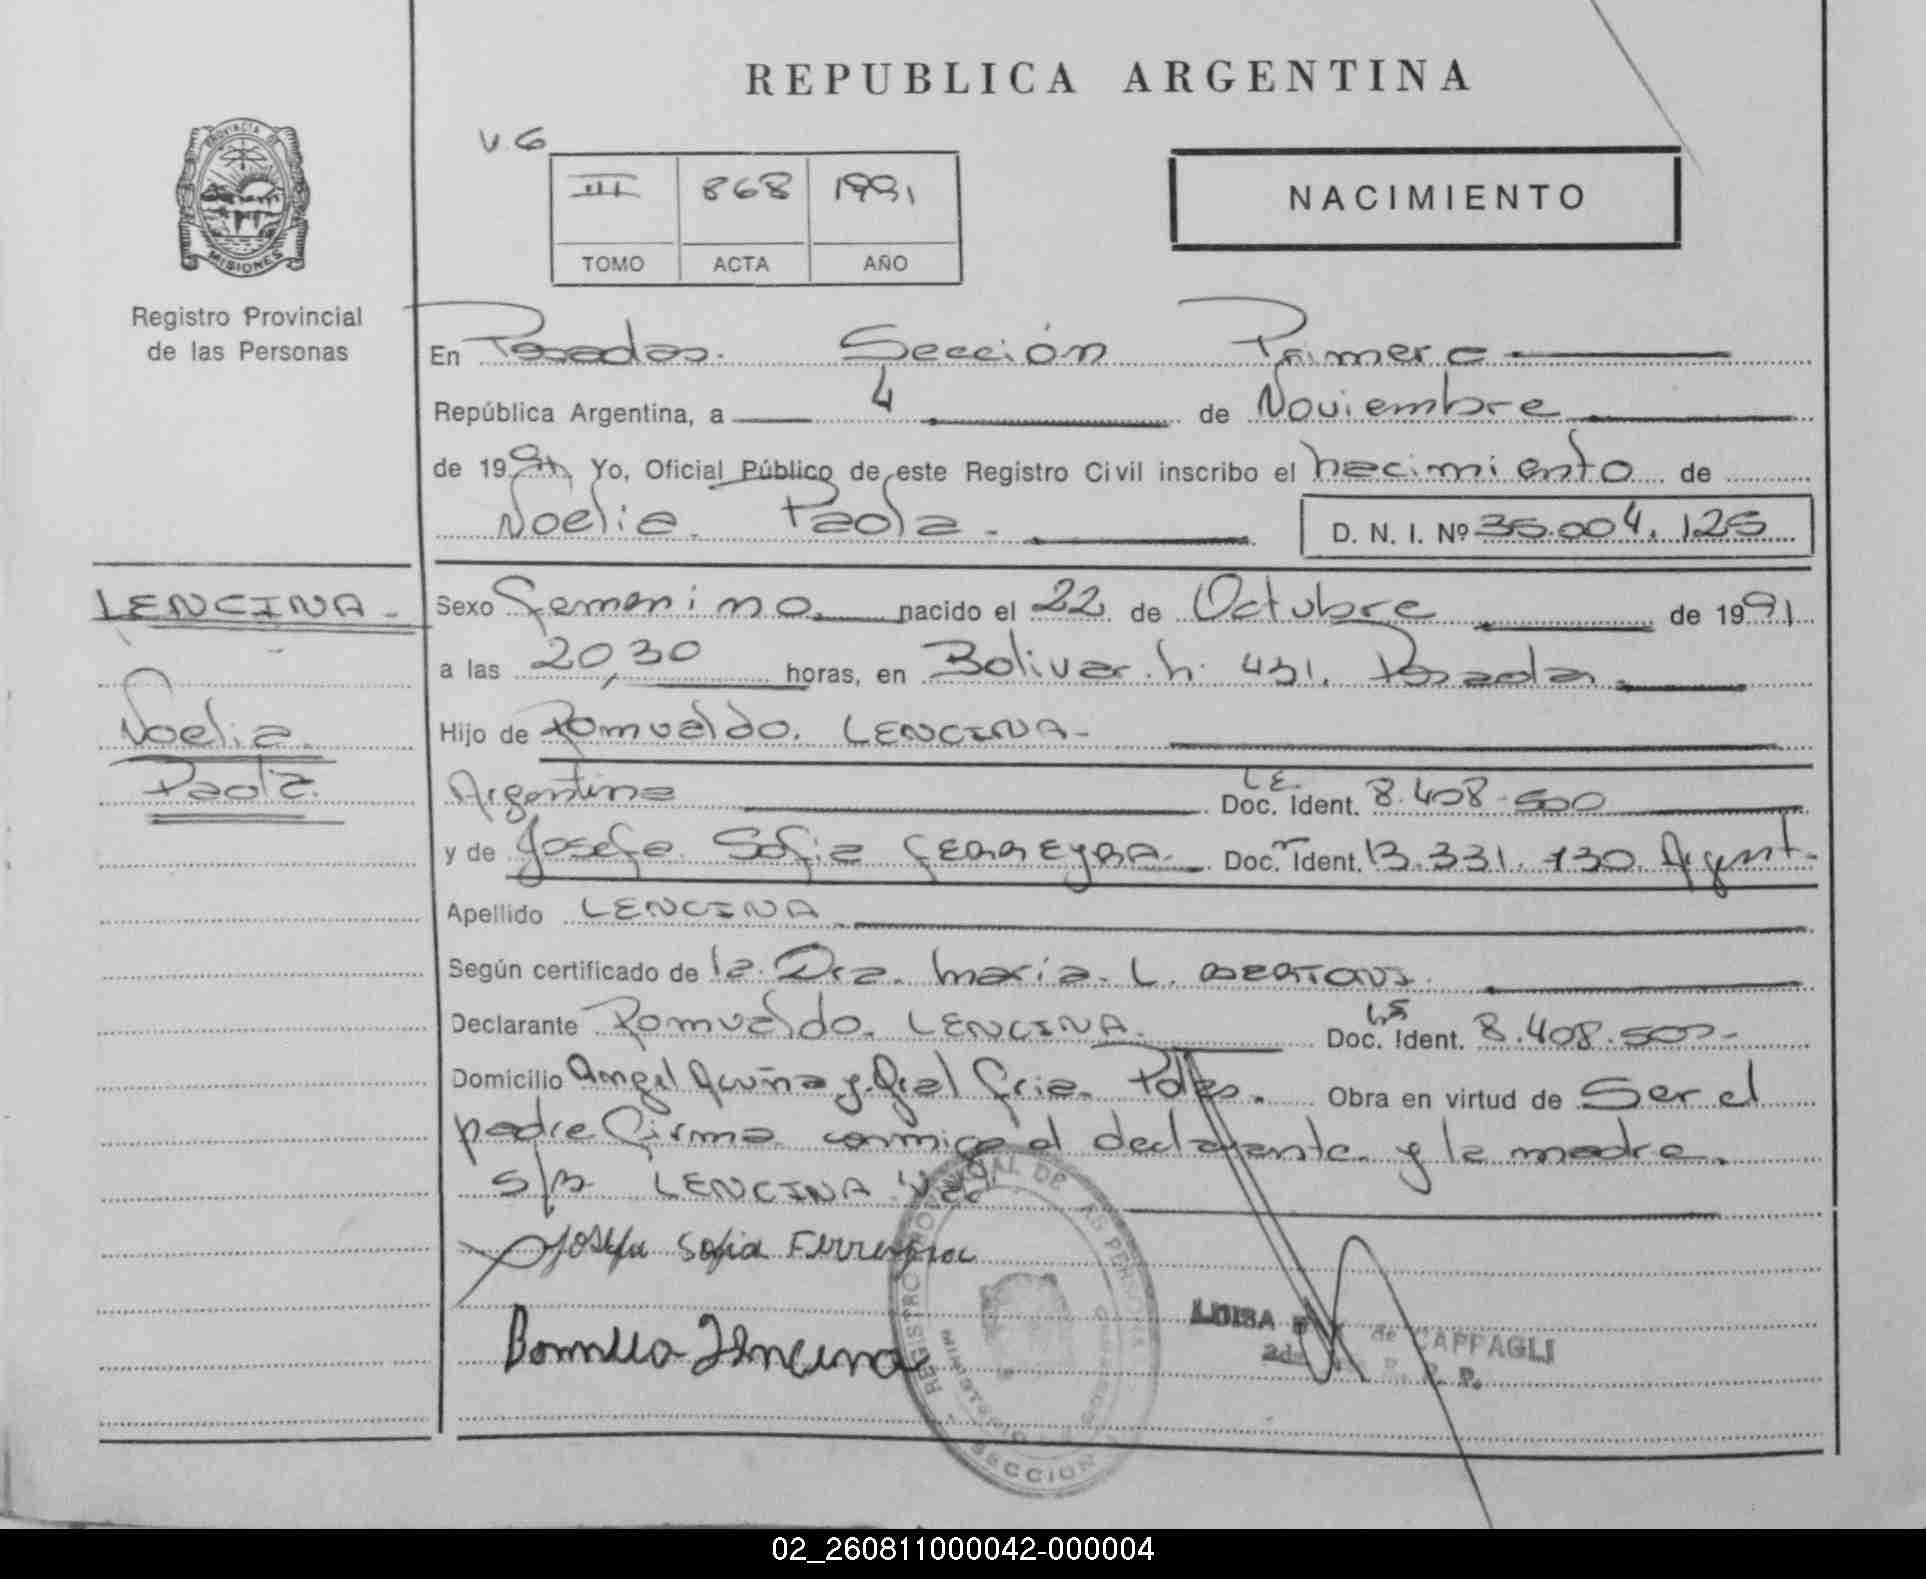 REPUBLICA ARGENTINA
PROVINCIA DE
MISIONES
Registro Provincial
de las Personas
V. 6
III 868 1991
TOMO ACTA AÑO
NACIMIENTO
En Posadas. Sección Primera
República Argentina, a 4 de Noviembre
de 1991 Yo, Oficial Público de este Registro Civil inscribo el nacimiento de
Noelia. Paola. D. N. I. Nº 36.004.125
LENCINA-
Noelia.
Paola.
Sexo Femenino. nacido el 22 de Octubre de 1991
a las 20,30 horas, en Bolivar. n. 431. Posadas
Hijo de Romualdo. LENCINA-
Argentino L.E. Doc. Ident. 8.408.500
y de Josefa. Sofia FERREYRA. Doc. Ident. 13.331.130. Argent.
Apellido LENCINA.
Según certificado de la. Dra. Maria. L. BERTONI.
Declarante Romualdo. LENCINA. Doc. Ident. 8.408.500-
Domicilio Angel Acuña y Gral Pdas. Obra en virtud de Ser el
padre Firma conmigo el declarante. y la madre.
S/B LENCINA
Josefa Sofia Ferreyra
LUISA de CAPPAGLI
R. P. P.
REGISTRO PROVINCIAL DE LAS PERSONAS
SECCION
02_260811000042-000004